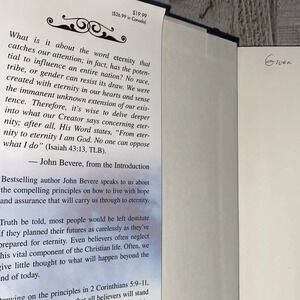 $19.99
($26.99 in Canada)
What is it about the word eternity that
catches our attention; in fact, has the poten-
tial to influence an entire nation? No race,
tribe, or gender can resist its draw. We were
created with eternity in our hearts and sense
the immanent unknown extension of our exis-
tence. Therefore, it's wise to delve deeper
into what our Creator says concerning eter-
nity; after all, His Word states, "From eter-
nity to eternity I am God. No one can oppose
what I do" (Isaiah 43:13, TLB).
— John Bevere, from the Introduction
Bestselling author John Bevere speaks to us about
the compelling principles on how to live with hope
and assurance that will carry us through to eternity.
Truth be told, most people would be left destitute
if they planned their futures as carelessly as they've
prepared for eternity. Even believers often neglect
this vital component of the Christian life. Often, we
give little thought to what will happen beyond the
end of today.
Drawing on the principles in 2 Corinthians 5:9–11,
that all believers will stand